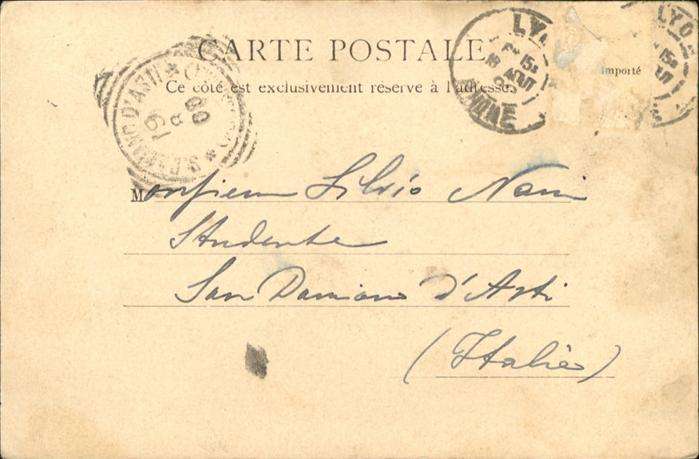 CARTE POSTALE
Ce côté est exclusivement réservé à l'adresse.
importé
LYON
RHONE
S. DAMIANO D'ASTI
19 8 00
Monsieur Silvio Nani
Studente
San Damiano d'Asti
(Italie)